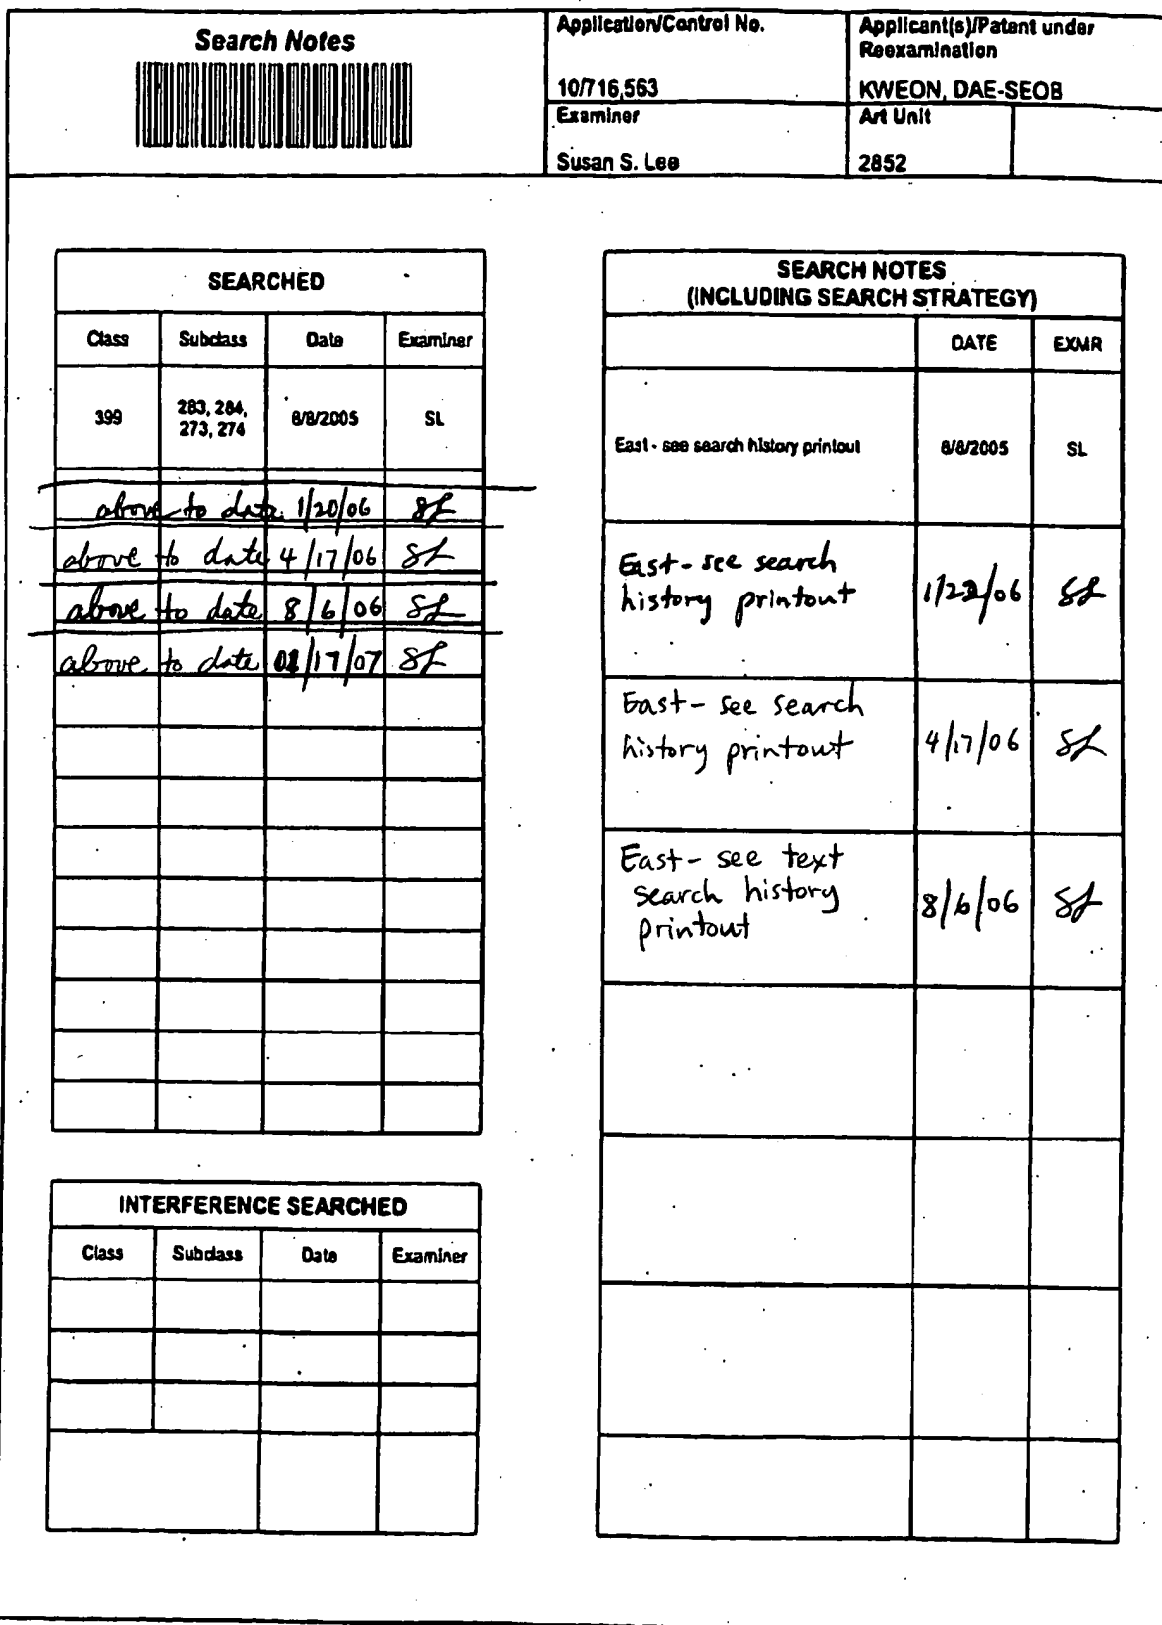 Search Notes
Application/Control No.
10/716,563
Applicant(s)/Patent under
Reexamination
KWEON, DAE-SEOB
Examiner
Susan S. Lee
Art Unit
2852
SEARCHED
Class Subclass Date Examiner
399 283, 284, 273, 274 8/8/2005 SL
above to date 1/20/06 SL
above to date 4/17/06 SL
above to date 8/6/06 SL
above to date 01/17/07 SL
INTERFERENCE SEARCHED
Class Subclass Date Examiner
SEARCH NOTES
(INCLUDING SEARCH STRATEGY)
DATE EXMR
East - see search history printout 8/8/2005 SL
East - see search
history printout 1/22/06 SL
East - see search
history printout 4/17/06 SL
East - see text
search history
printout 8/6/06 SL